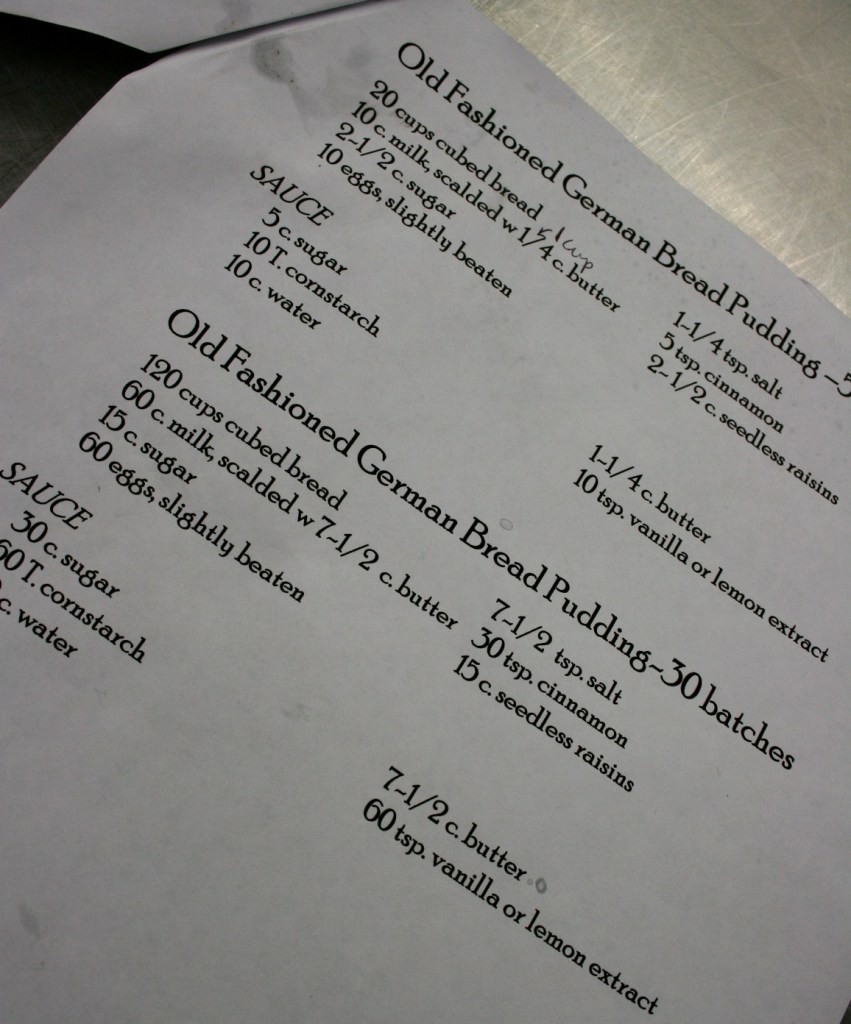 Old Fashioned German Bread Pudding ~5
20 cups cubed bread
10 c. milk, scalded w 1/4 c. butter
1 cup
2-1/2 c. sugar
10 eggs, slightly beaten
1-1/4 tsp. salt
5 tsp. cinnamon
2-1/2 c. seedless raisins
SAUCE
5 c. sugar
10 T. cornstarch
10 c. water
1-1/4 c. butter
10 tsp. vanilla or lemon extract
Old Fashioned German Bread Pudding~30 batches
120 cups cubed bread
60 c. milk, scalded w 7-1/2 c. butter
15 c. sugar
60 eggs, slightly beaten
7-1/2 tsp. salt
30 tsp. cinnamon
15 c. seedless raisins
SAUCE
30 c. sugar
60 T. cornstarch
c. water
7-1/2 c. butter
60 tsp. vanilla or lemon extract